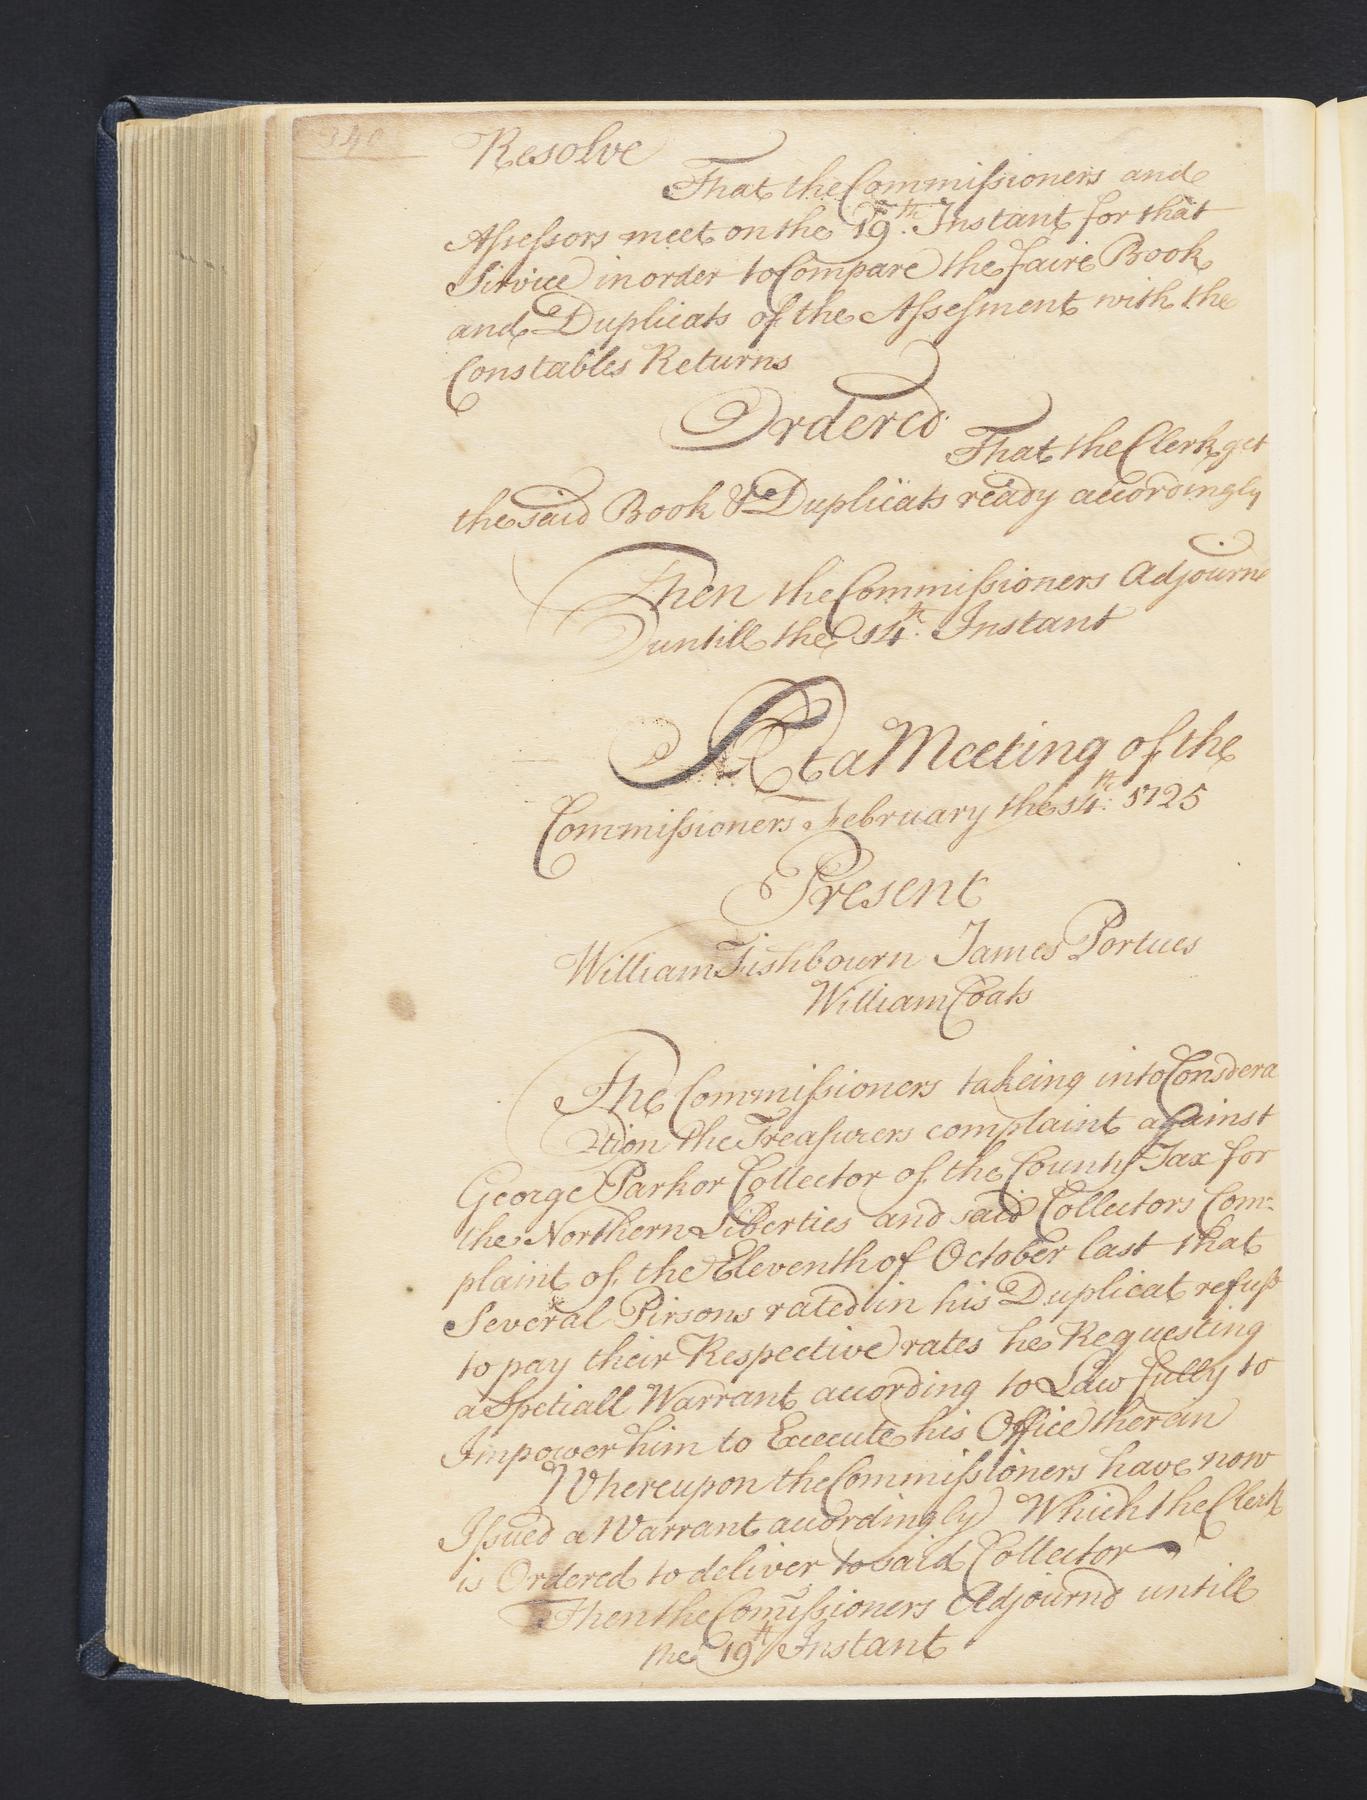 340
Resolve
That the Commissioners and
Assessors meet on the 19th. Instant for that
Sirvice in order to Compare the faire Book
and Duplicats of the Assesment with the
Constables Returns
Ordered
That the Clerk get
the said Book & Duplicats ready accordingly
Then the Commissioners Adjourn
untill the 14th. Instant
At a Meeting of the
Commissioners February the 14th: 1725
Present
William Fishbourn James Portues
William Coats
The Commissioners takeing into Consdera
tion the Treasurers complaint against
George Parkor Collector of the County Tax for
the Northern Liberties and said Collectors Com=
plaint of the Eleventh of October last that
Several Pirsons rated in his Duplicat refuse
to pay their Respective rates he Requesting
a Spetiall Warrant according to Law fully to
Impower him to Execute his Office therein
Whereupon the Commissioners have now
Issued a Warrant acordingly Which the Clerk
is Ordered to deliver to said Collector
Then the Comissioners Adjournd untill
the 19th Instant